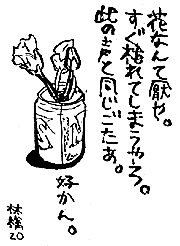 花なんて厭や。
すぐ枯れてしまうやろ。
此の と同じごたあ。
好かん。
林檎
20